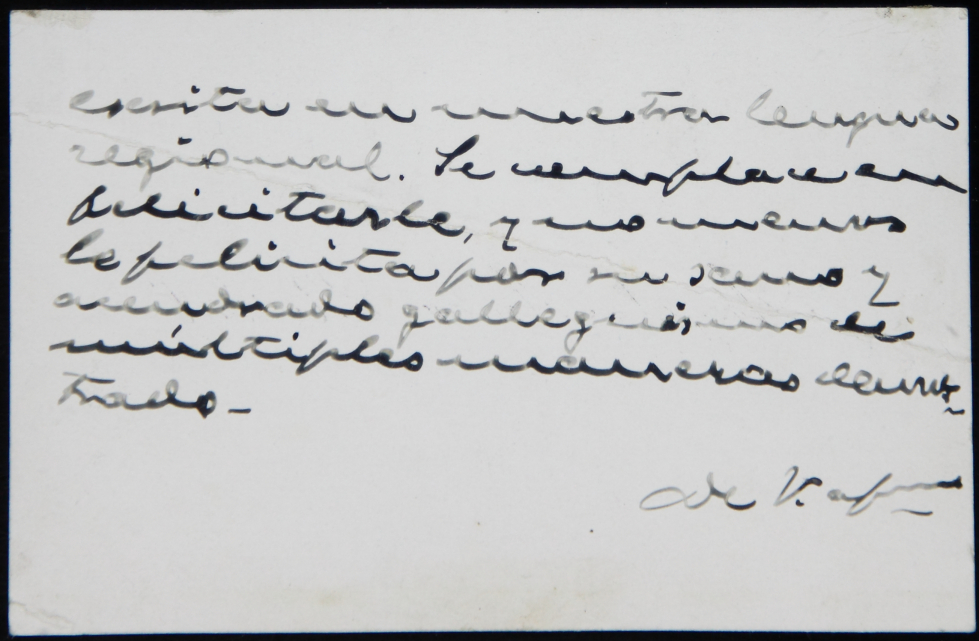 escrita en nuestra lengua
regional. Se complace en
felicitarle, y no menos
le felicita por su sano y
acendrado galleguismo de
múltiples maneras demos-
trado.-
de V. afmo